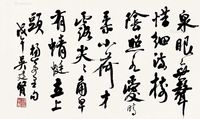 泉眼無聲
惜細流樹
陰照水愛晴
柔小荷才
露尖尖角早
有蜻蜓立上
頭
吳建賢